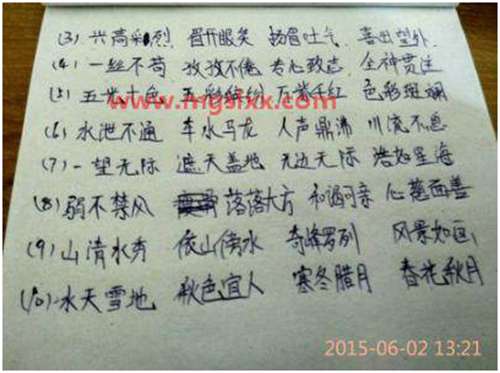 (3) 兴高彩烈 眉开眼笑 扬眉吐气 喜出望外
(4) 一丝不苟 孜孜不倦 专心致志 全神贯注
(5) 五光十色 五彩缤纷 万紫千红 色彩斑斓
www.mgsfxx.com
(6) 水泄不通 车水马龙 人声鼎沸 川流不息
(7) 一望无际 遮天盖地 无边无际 浩如星海
(8) 弱不禁风 落落大方 和谒可亲 心慈面善
(9) 山清水秀 依山傍水 奇峰罗列 风景如画
(10) 水天雪地 秋色宜人 寒冬腊月 春花秋月
2015-06-02 13:21